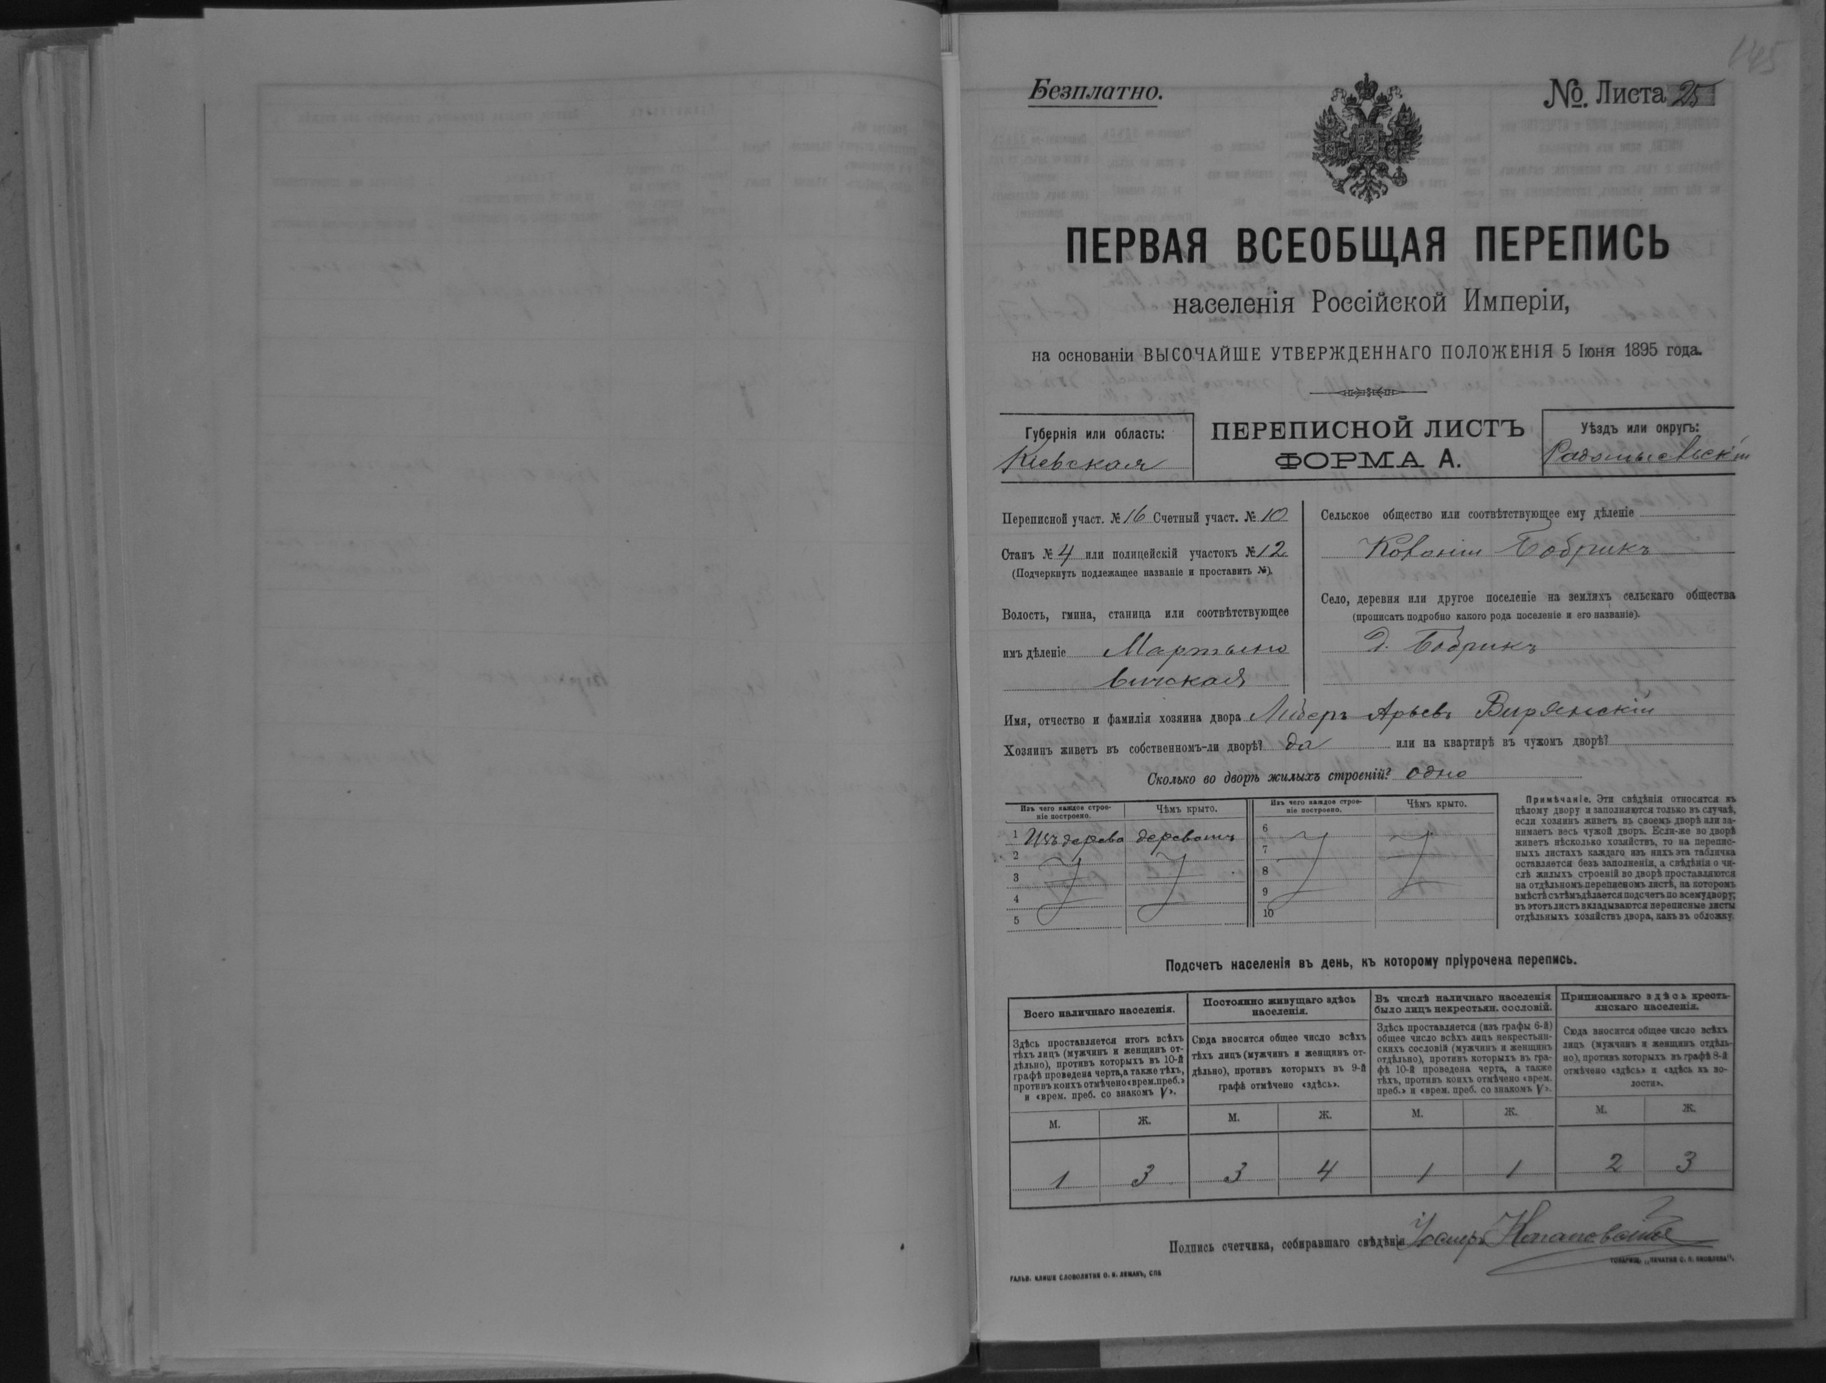 145
Безплатно.
№. Листа 25
ПЕРВАЯ ВСЕОБЩАЯ ПЕРЕПИСЬ
населенія Россійской Имперіи,
на основаніи ВЫСОЧАЙШЕ УТВЕРЖДЕННАГО ПОЛОЖЕНІЯ 5 Іюня 1895 года.
Губернія или область:
Кіевская
ПЕРЕПИСНОЙ ЛИСТЪ
ФОРМА А.
Уѣздъ или округъ:
Радомысльскій
Переписной участ. № 16 Счетный участ. № 10
Станъ № 4 или полицейскій участокъ № 12
(Подчеркнуть подлежащее названіе и проставить №).
Волость, гмина, станица или соотвѣтствующее
имъ дѣленіе Мартыно
вичская
Сельское общество или соотвѣтствующее ему дѣленіе
Бобрикъ
Село, деревня или другое поселеніе на земляхъ сельскаго общества
(прописать подробно какого рода поселеніе и его названіе).
Д. Бобрикъ
Имя, отчество и фамилія хозяина двора Лейберъ Арьевъ
Хозяинъ живетъ въ собственномъ-ли дворѣ? да или на квартирѣ въ чужомъ дворѣ?
Сколько во дворѣ жилыхъ строеній? одно
Изъ чего каждое строе-
ніе построено.
Чѣмъ крыто.
Изъ чего каждое строе-
ніе построено.
Чѣмъ крыто.
1 Изъ дерева
2
3
4
5
6
7
8
9
10
Примѣчаніе. Эти свѣдѣнія относятся къ
цѣлому двору и заполняются только въ случаѣ,
если хозяинъ живетъ въ своемъ дворѣ или за-
нимаетъ весь чужой дворъ. Если-же во дворѣ
живетъ нѣсколько хозяйствъ, то на перепис-
ныхъ листахъ каждаго изъ нихъ эта табличка
оставляется безъ заполненія, а свѣдѣнія о чи-
слѣ жилыхъ строеній во дворѣ проставляются
на отдѣльномъ переписномъ листѣ, на которомъ
вмѣстѣ съ тѣмъ дѣлается подсчетъ по всему двору;
въ этотъ листъ вкладываются переписные листы
отдѣльныхъ хозяйствъ двора, какъ въ обложку.
Подсчетъ населенія въ день, къ которому пріурочена перепись.
Всего наличнаго населенія.
Здѣсь проставляется итогъ всѣхъ
тѣхъ лицъ (мужчинъ и женщинъ от-
дѣльно), противъ которыхъ въ 10-й
графѣ проведена черта, а также тѣхъ,
противъ коихъ отмѣчено «врем. преб.»
и «врем. преб. со знакомъ V».
Постоянно живущаго здѣсь
населенія.
Сюда вносится общее число всѣхъ
тѣхъ лицъ (мужчинъ и женщинъ от-
дѣльно), противъ которыхъ въ 9-й
графѣ отмѣчено «здѣсь».
Въ числѣ наличнаго населенія
было лицъ некрестьян. сословій.
Здѣсь проставляется (изъ графы 6-й)
общее число всѣхъ лицъ некрестьян-
скихъ сословій (мужчинъ и женщинъ
отдѣльно), противъ которыхъ въ гра-
фѣ 10-й проведена черта, а также
тѣхъ, противъ коихъ отмѣчено «врем.
преб.» и «врем. преб. со знакомъ V».
Приписаннаго здѣсь кресть-
янскаго населенія.
Сюда вносится общее число всѣхъ
лицъ (мужчинъ и женщинъ отдѣль-
но), противъ которыхъ въ графѣ 8-й
отмѣчено «здѣсь» и «здѣсь къ во-
лости».
М. Ж. М. Ж. М. Ж. М. Ж.
1 3 3 4 1 1 2 3
Подпись счетчика, собиравшаго свѣдѣнія
ГАЛЬВ. КЛИШЕ СЛОВОЛИТНИ О. И. ЛЕМАНЪ, СПБ